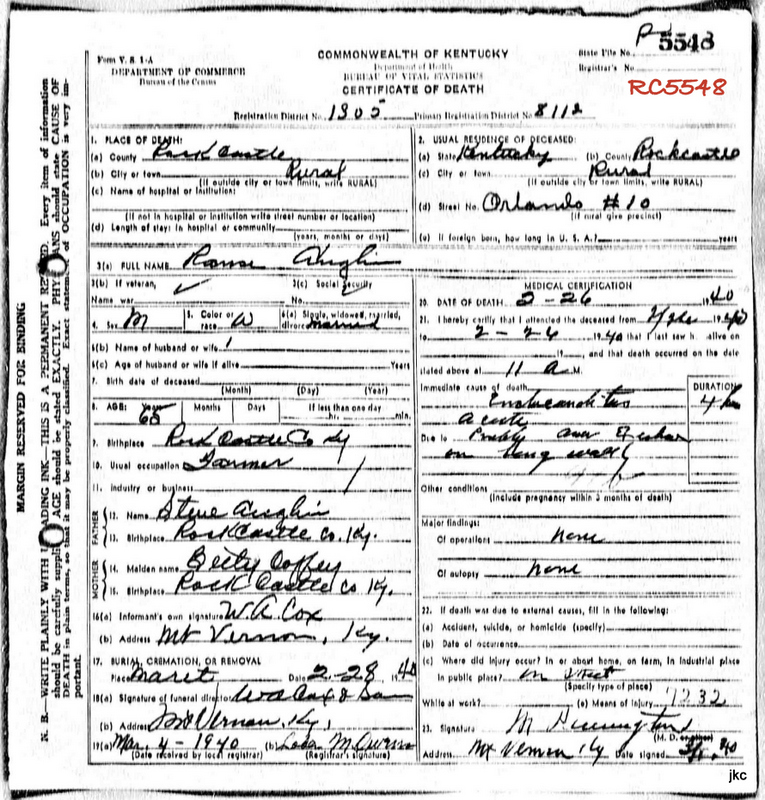 Form V. S. 1-A
DEPARTMENT OF COMMERCE
Bureau of the Census
COMMONWEALTH OF KENTUCKY
Department of Health
BUREAU OF VITAL STATISTICS
CERTIFICATE OF DEATH
State File No. 5548
Registrar's No.
RC5548
Registration District No. 1305 Primary Registration District No. 8112
MARGIN RESERVED FOR BINDING
N. B.—WRITE PLAINLY WITH UNFADING INK—THIS IS A PERMANENT RECORD. Every item of information
should be carefully supplied. AGE should be stated EXACTLY. PHYSICIANS should state CAUSE OF
DEATH in plain terms, so that it may be properly classified. Exact statement of OCCUPATION is very im-
portant.
1. PLACE OF DEATH:
(a) County Rock Castle
(b) City or town Rural
(If outside city or town limits, write RURAL)
(c) Name of hospital or institution:
(If not in hospital or institution write street number or location)
(d) Length of stay: In hospital or community
(years, months or days)
2. USUAL RESIDENCE OF DECEASED:
(a) State Kentucky (b) County Rockcastle
(c) City or town Rural
(If outside city or town limits, write RURAL)
(d) Street No. Orlando #10
(If rural give precinct)
(e) If foreign born, how long in U. S. A.? years
3(a) FULL NAME Anglin
3(b) If veteran,
Name war
3(c) Social Security
No.
4. Sex M
5. Color or
race W
6(a) Single, widowed, married,
divorced married
6(b) Name of husband or wife
6(c) Age of husband or wife if alive Years
7. Birth date of deceased
(Month) (Day) (Year)
8. AGE: Years 68 Months Days If less than one day
hr. min.
9. Birthplace Rock Castle Co Ky
10. Usual occupation Farmer
11. Industry or business
FATHER
12. Name Steve Anglin
13. Birthplace Rock Castle Co. Ky.
MOTHER
14. Maiden name Betty Coffey
15. Birthplace Rock Castle Co Ky.
16(a) Informant's own signature W. A. Cox
(b) Address Mt Vernon, Ky.
17. BURIAL, CREMATION, OR REMOVAL
Place Maret Date 2-28, 1940
18(a) Signature of funeral director W A Cox & Son
(b) Address Mt Vernon, Ky.
19(a) Mar. 4-1940 (b) Owens
(Date received by local registrar) (Registrar's signature)
MEDICAL CERTIFICATION
20. DATE OF DEATH 2-26, 1940
21. I hereby certify that I attended the deceased from
to 2-26, 1940 that I last saw h alive on
, 19 , and that death occurred on the date
stated above at 11 A M.
Immediate cause of death
DURATION
Endocarditis
acute
Due to
on long walk
Other conditions
(Include pregnancy within 3 months of death)
Major findings:
Of operations none
Of autopsy none
22. If death was due to external causes, fill in the following:
(a) Accident, suicide, or homicide (specify)
(b) Date of occurrence
(c) Where did injury occur? In or about home, on farm, in industrial place
in public place? on street
(Specify type of place)
While at work? (e) Means of injury
23. Signature M Pennington
(M. D. or other)
Address Mt Vernon Ky Date signed
jkc